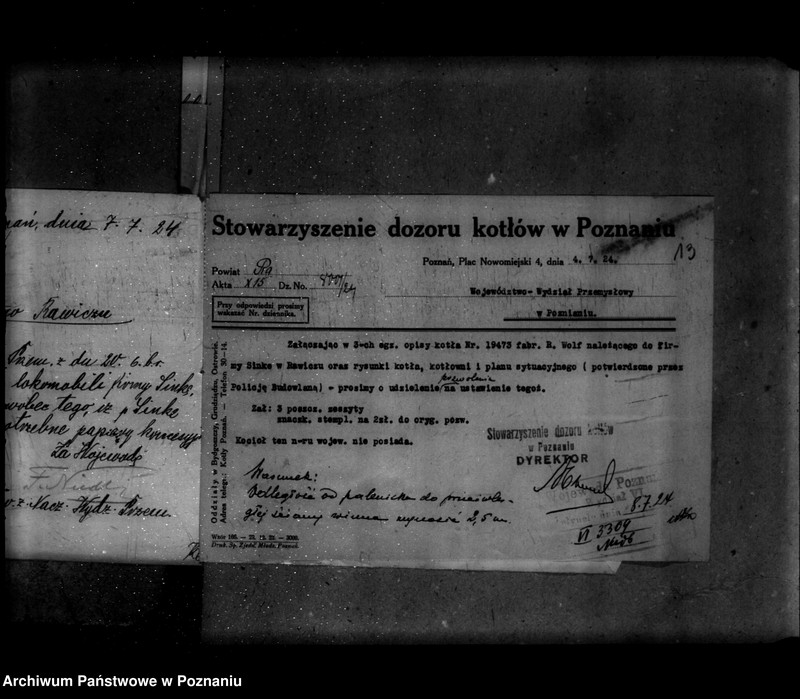 dnia 7. 7. 24
Rawiczu
z dn 20. 6. b.r.
lokomobili firmy Sinke,
wobec tego iż p. Sinke
papiery
Za Wojewodę
Nacz. Wydz. Przem.
Stowarzyszenie dozoru kotłów w Poznaniu
13
Poznań, Plac Nowomiejski 4, dnia 4. 7. 24.
Powiat Ra
Akta X15 Dz. No. /24
Przy odpowiedzi prosimy
wskazać Nr. dziennika.
Województwo- Wydział Przemysłowy
w Poznaniu.
Załączając w 3-ch egz. opisy kotła Nr. 19473 fabr. R. Wolf należącego do fir-
my Sinke w Rawiczu oraz rysunki kotła, kotłowni i planu sytuacyjnego ( potwierdzone przez
pozwolenia
Policję Budowlaną) - prosimy o udzielenie/na ustawienie tegoż.
Zał: 3 poszcz. zeszyty
znaczk. stempl. na 2zł. do oryg. pozw.
Kocioł ten n-ru wojew. nie posiada.
Stowarzyszenie dozoru kotłów
w Poznaniu
DYREKTOR
Warunek:
Odległość od paleniska do przeciwle-
głej ściany winna wynosić 2,5 m.
8.7.24
VI 3309
Oddziały w Bydgoszczy, Grudziądzu, Ostrowie.
Adres telegr. Kotły Poznań. — Telefon 30-14.
Druk. Sp. Zjedn. Młodz. Poznań.
Archiwum Państwowe w Poznaniu